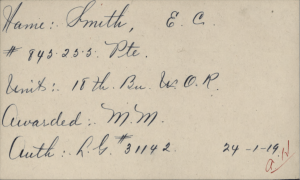 Name:. Smith, E. C.
# 845.255. Pte.
Unit:. 18th. Bn. W. O. R.
Awarded:. M.M.
Auth:. L.G. # 31142. 24-1-19.
a.H